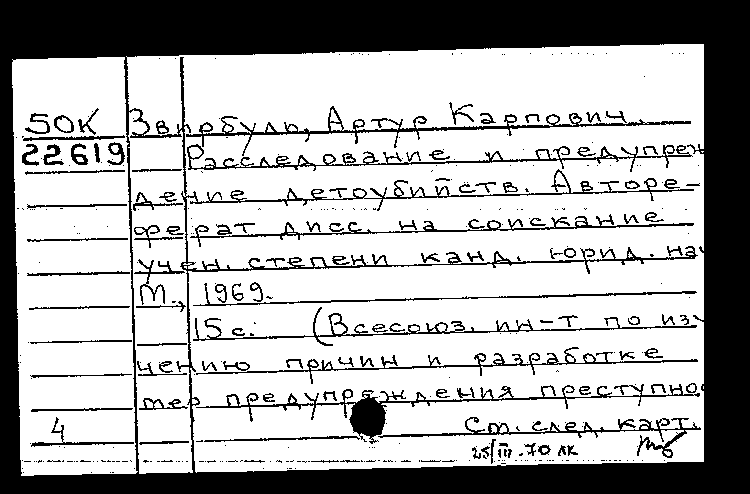 50К Звирбуль, Артур Карпович.
22619 Расследование и предупреж
дение детоубийств. Авторе-
ферат дисс. на соискание
учен. степени канд. юрид. на
М., 1969.
15 с. (Всесоюз. ин-т по изу
чению причин и разработке
мер предупреждения преступно
4 См. след. карт.
25/III-70 лк